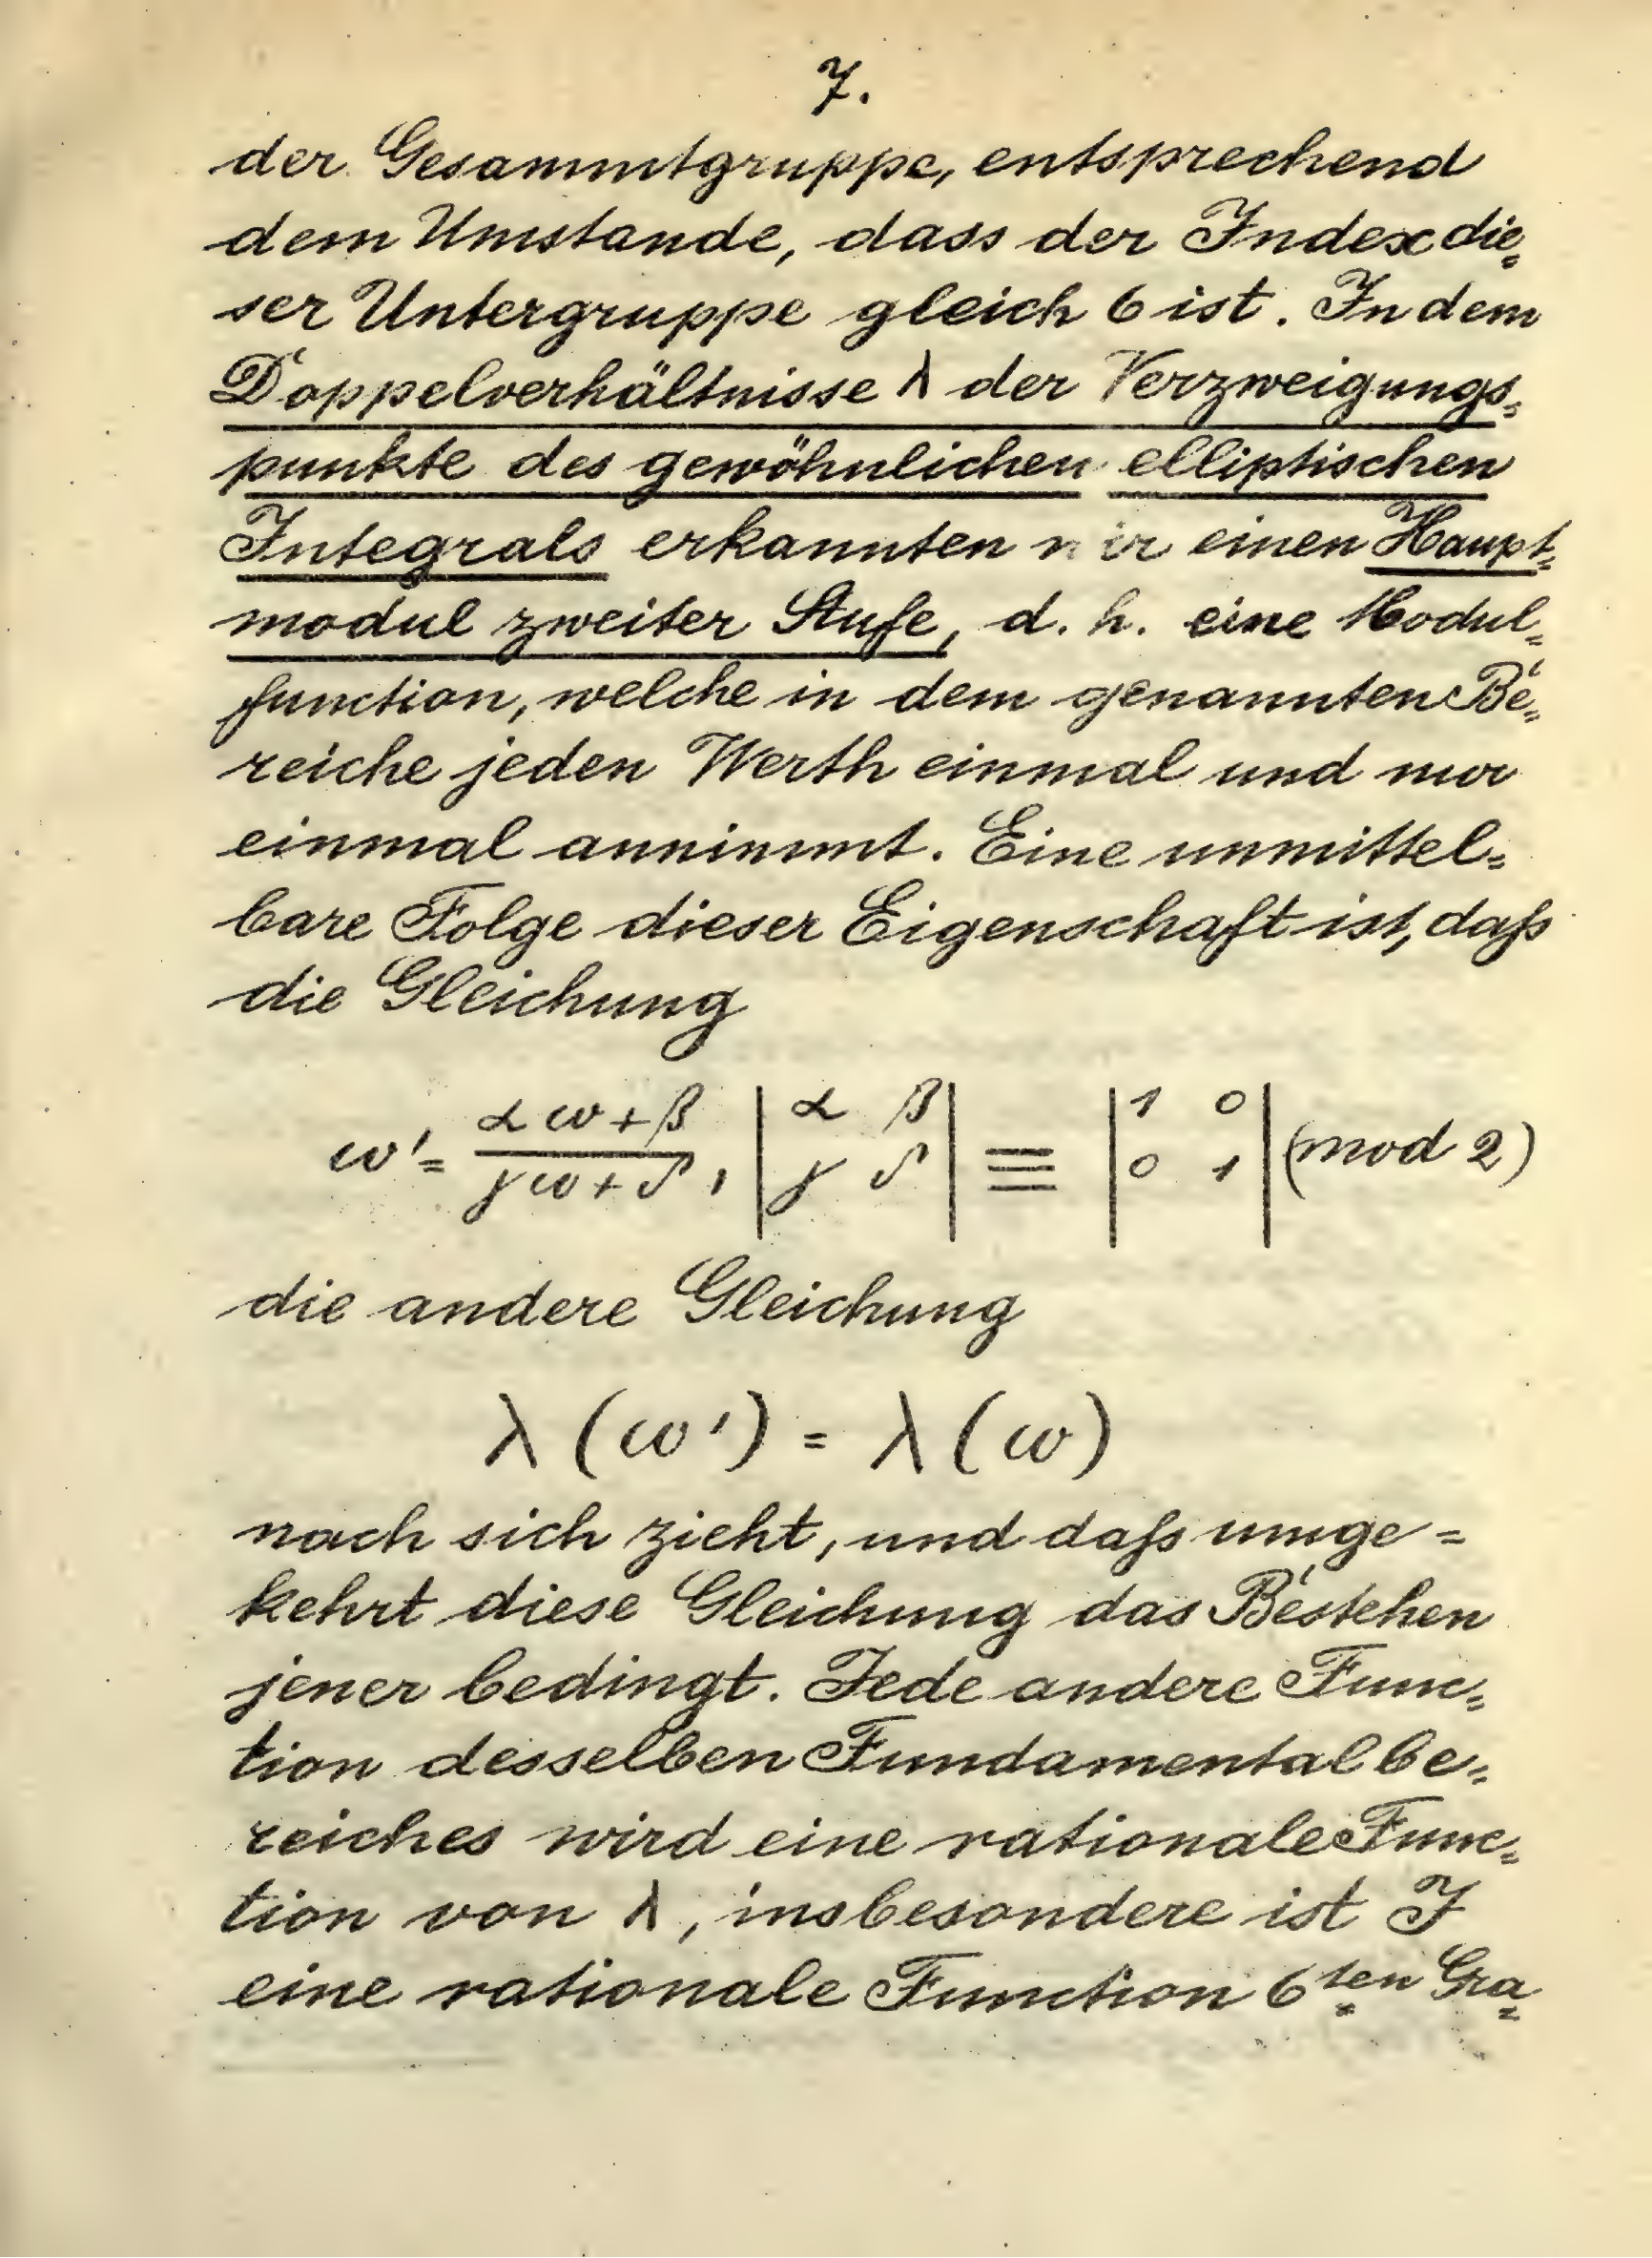 7.
der Gesammtgruppe, entsprechend
dem Umstande, dass der Index die=
ser Untergruppe gleich 6 ist. In dem
Doppelverhältnisse λ der Verzweigungs=
punkte des gewöhnlichen elliptischen
Integrals erkannten wir einen Haupt=
modul zweiter Stufe, d. h. eine Modul=
function, welche in dem genannten Be=
reiche jeden Werth einmal und nur
einmal annimmt. Eine unmittel=
bare Folge dieser Eigenschaft ist, daß
die Gleichung
ω' = (αω+β)/(γω+δ), |α β; γ δ| ≡ |1 0; 0 1| (mod 2)
die andere Gleichung
λ (ω') = λ (ω)
nach sich zieht, und daß umge=
kehrt diese Gleichung das Bestehen
jener bedingt. Jede andere Func=
tion desselben Fundamentalbe=
reiches wird eine rationale Func=
tion von λ, insbesondere ist J
eine rationale Function 6ten Gra=